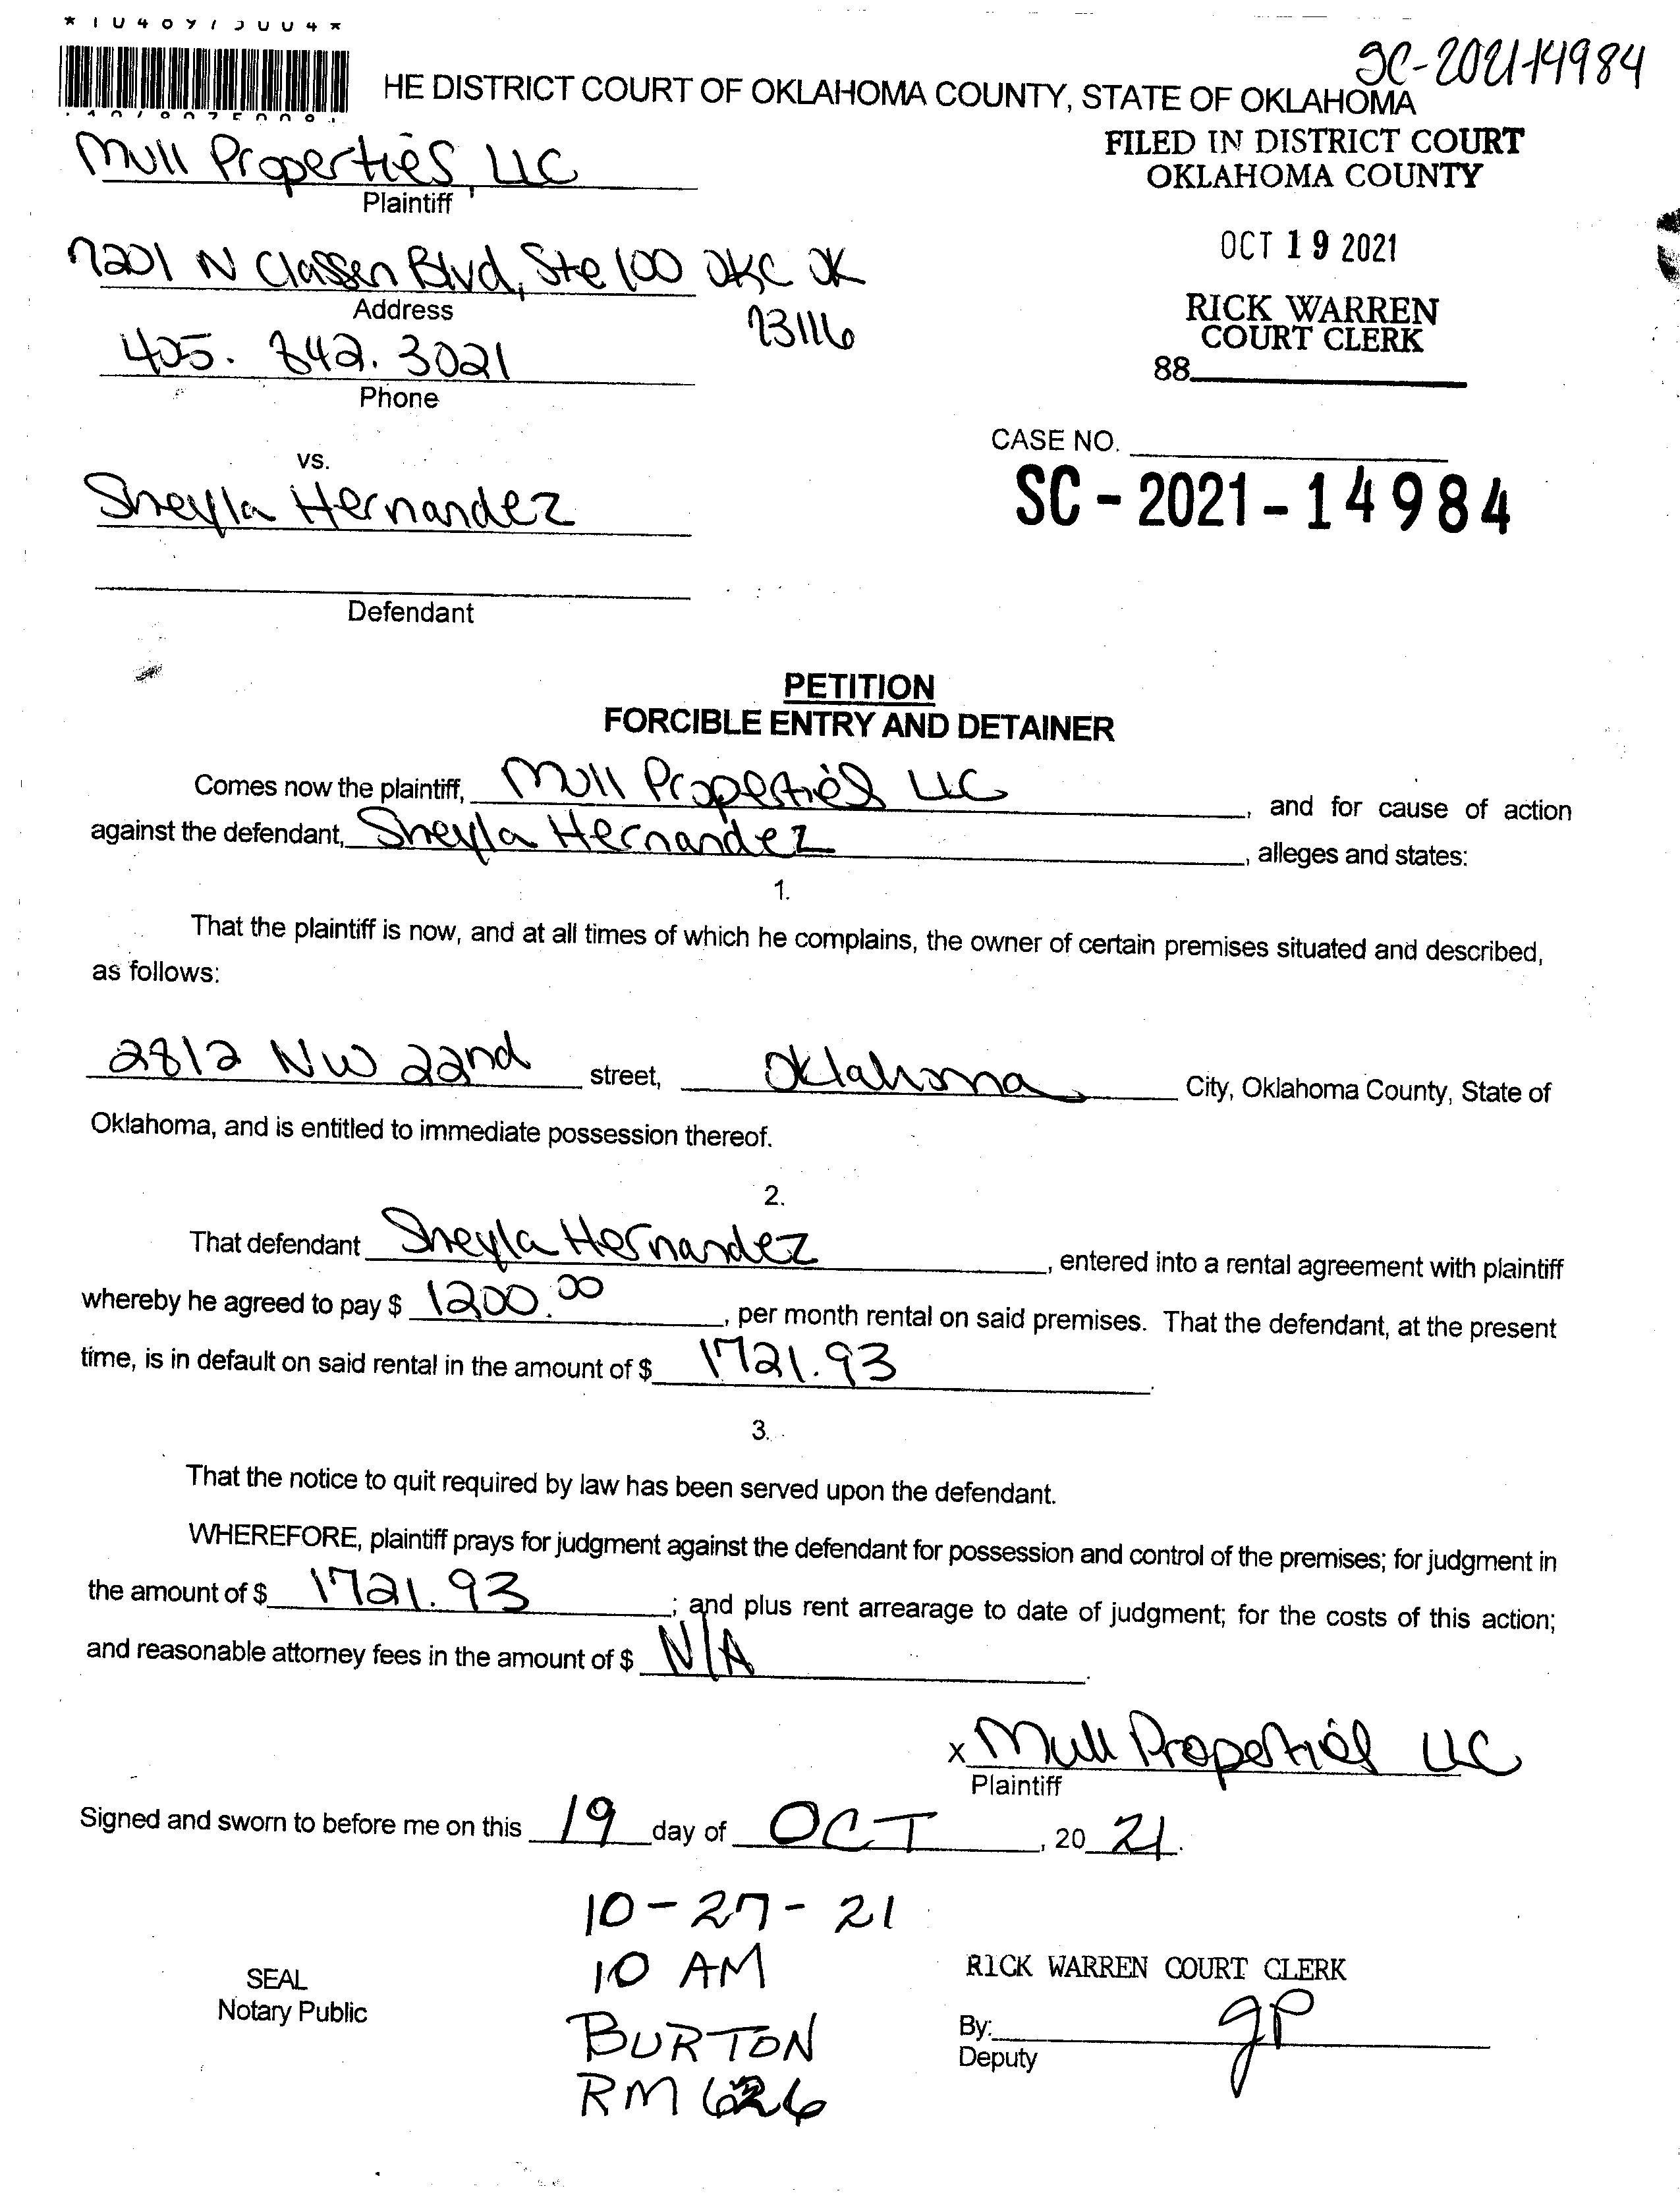 SC-2021-14984
HE DISTRICT COURT OF OKLAHOMA COUNTY, STATE OF OKLAHOMA
FILED IN DISTRICT COURT
OKLAHOMA COUNTY
Mull Properties, LLC
Plaintiff
OCT 19 2021
7201 N Classen Blvd, Ste 100 OKC OK
73116
Address
RICK WARREN
COURT CLERK
405. 842. 3021
88
Phone
CASE NO.
SC-2021-14984
vs.
Sheyla Hernandez
Defendant
PETITION
FORCIBLE ENTRY AND DETAINER
Comes now the plaintiff, Mull Properties LLC, and for cause of action
against the defendant, Sheyla Hernandez, alleges and states:
1.
That the plaintiff is now, and at all times of which he complains, the owner of certain premises situated and described,
as follows:
2812 NW 22nd street, Oklahoma City, Oklahoma County, State of
Oklahoma, and is entitled to immediate possession thereof.
2.
That defendant Sheyla Hernandez, entered into a rental agreement with plaintiff
whereby he agreed to pay $ 1200.00, per month rental on said premises. That the defendant, at the present
time, is in default on said rental in the amount of $ 1721.93.
3.
That the notice to quit required by law has been served upon the defendant.
WHEREFORE, plaintiff prays for judgment against the defendant for possession and control of the premises; for judgment in
the amount of $ 1721.93; and plus rent arrearage to date of judgment; for the costs of this action;
and reasonable attorney fees in the amount of $ N/A.
x Mull Properties LLC
Plaintiff
Signed and sworn to before me on this 19 day of OCT, 20 21.
10-27-21
10 AM
BURTON
RM 626
SEAL
Notary Public
RICK WARREN COURT CLERK
By: JP
Deputy